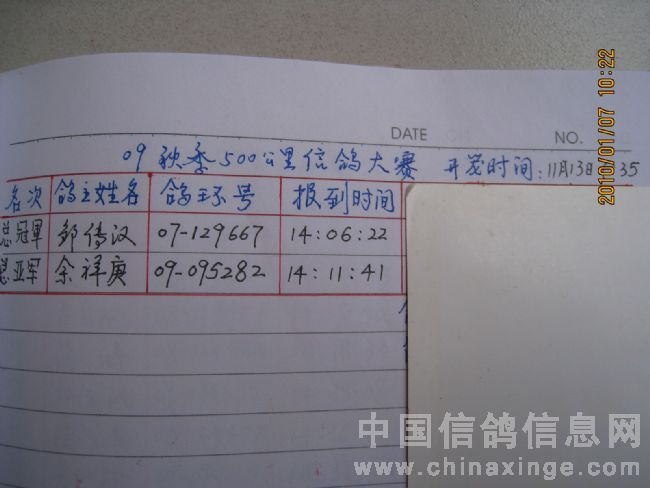 2010/01/07 10:22
DATE
NO.
09秋季500公里信鸽大赛 开笼时间:11月13日 35
名次 鸽主姓名 鸽环号 报到时间
总冠軍 邹传汉 07-129667 14:06:22
总亚军 余祥庚 09-095282 14:11:41
中国信鸽信息网
www.chinaxinge.com